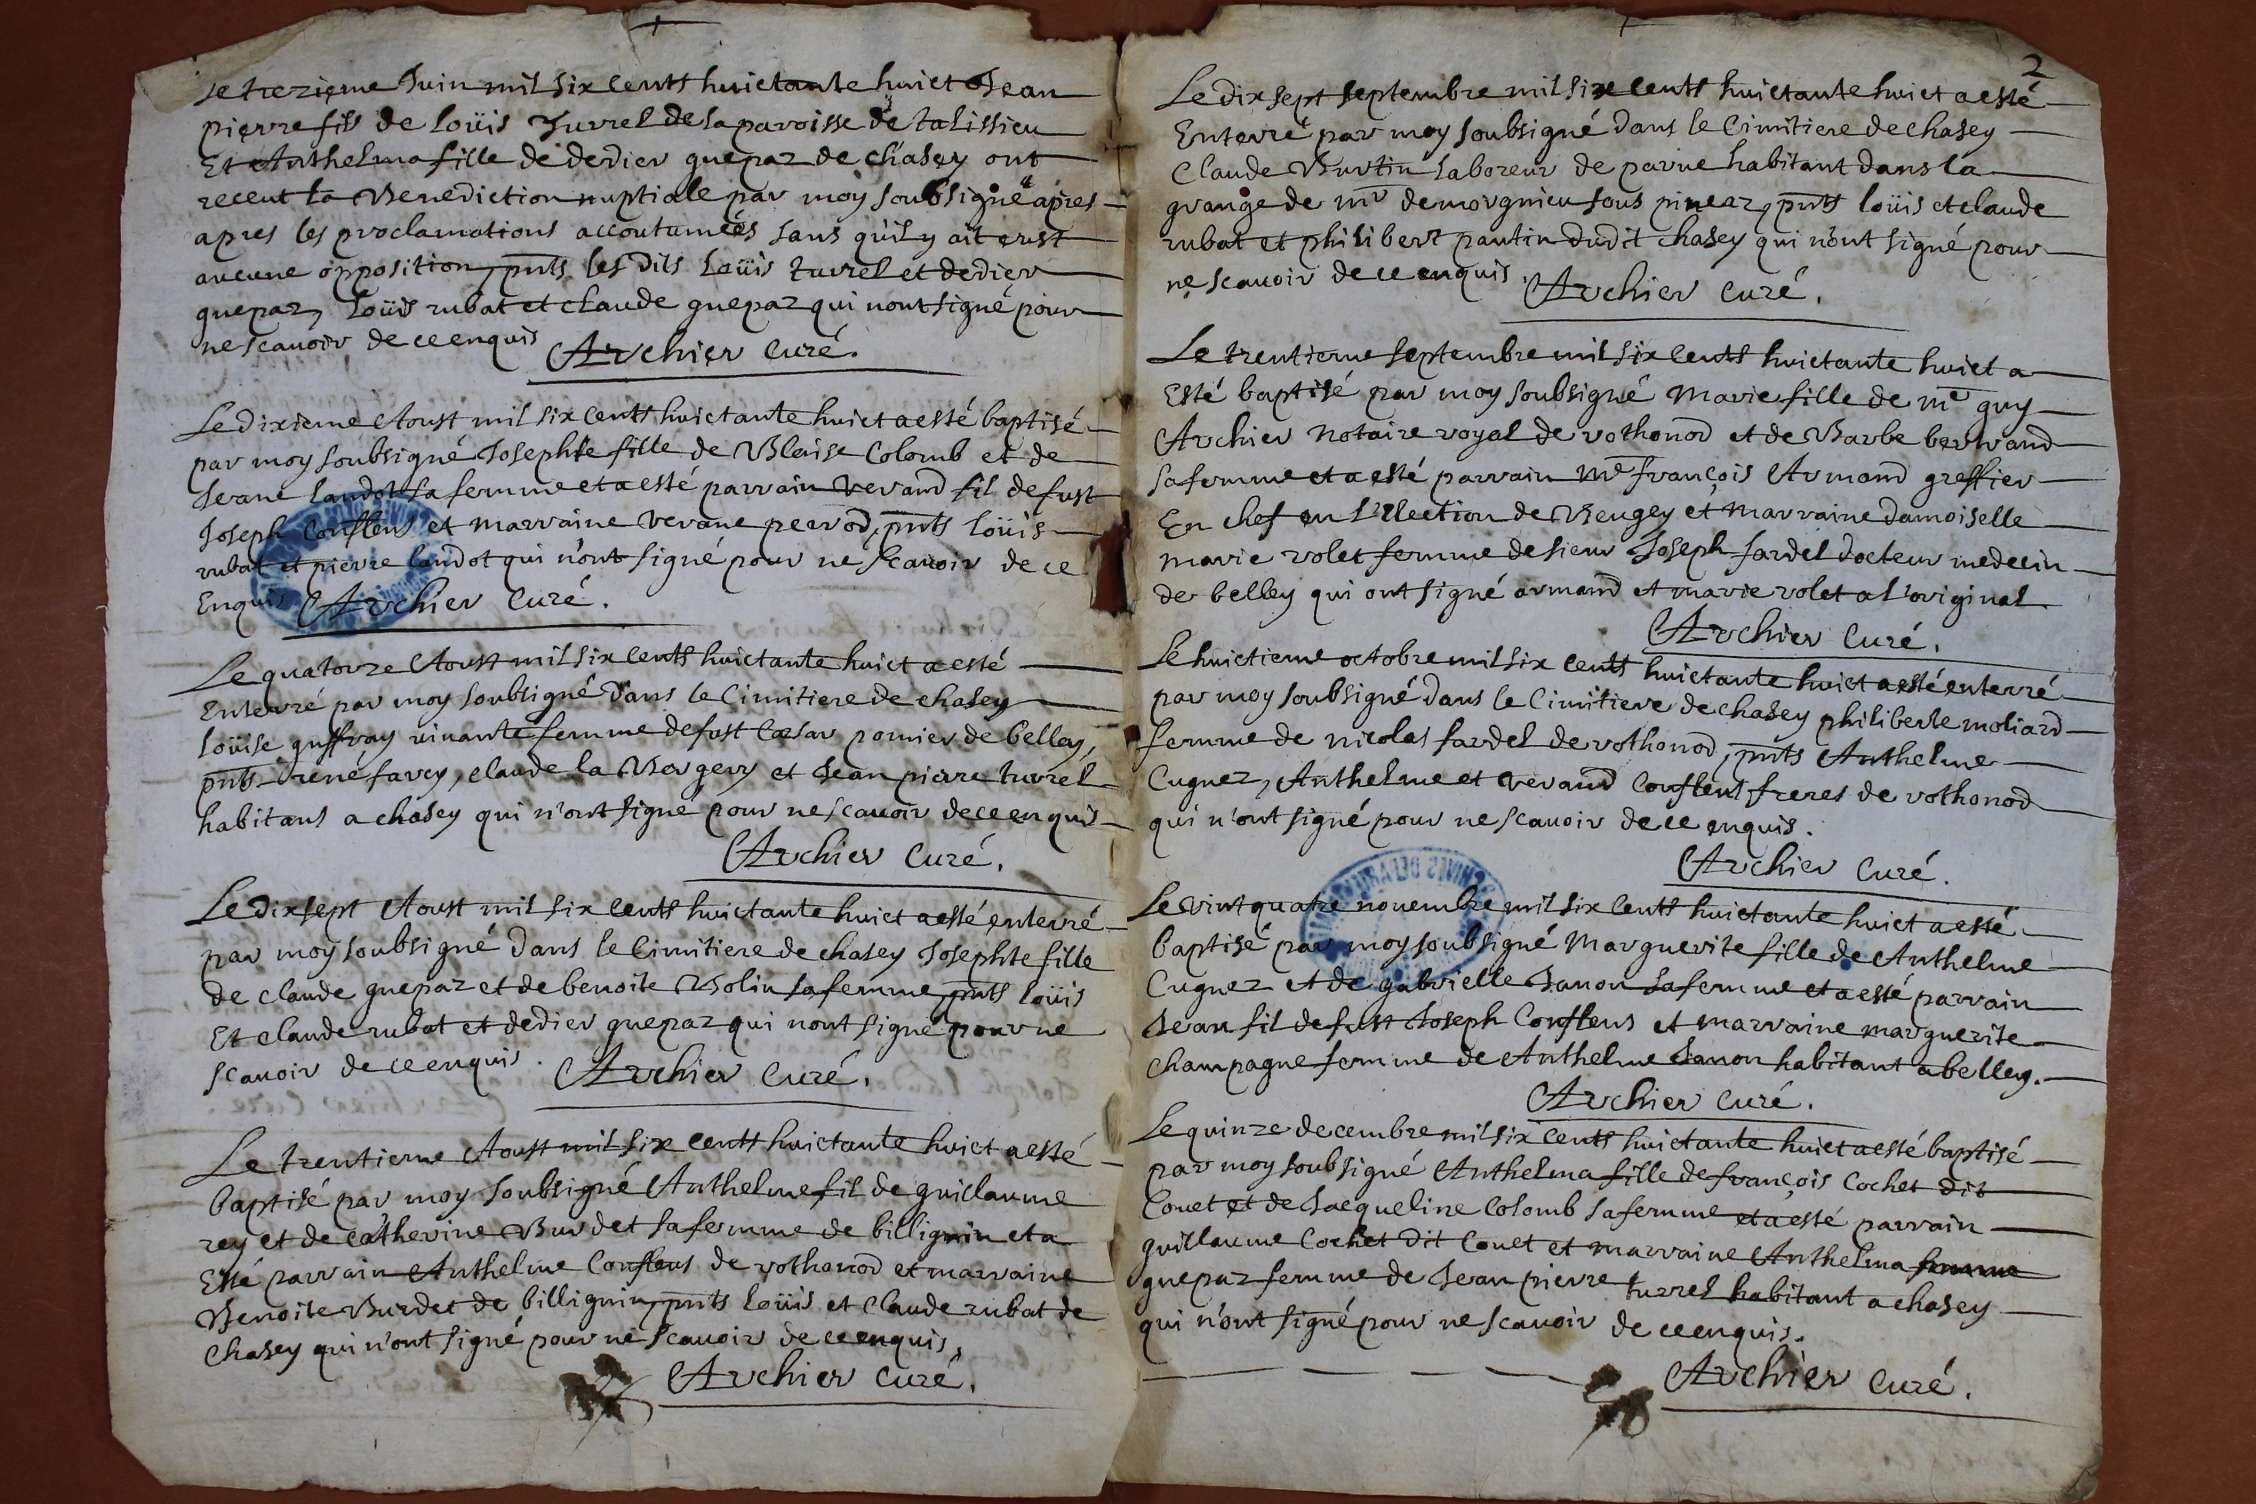 Le trezieme Juin mil six cents huictante huict Jean
pierre fils de Loüis Turrel de la paroisse de talissieu
Et Anthelma fille de dedier guepaz de chasey ont
receut la Benediction nuptiale par moy soubsigné apres
apres les proclamations accoutumées sans qu'il y ait eust
aucune opposition, pnts les dits Loüis turrel et dedier
guepaz, Loüis rubat et claude guepaz qui nont signé pour
ne scauoir de ce enquis Archier Curé.
Le dixieme Aoust mil six cents huictante huict a esté baptisé
par moy soubsigné Josephte fille de Blaise Colomb et de
Jeane Landot sa femme et a esté parrain Verand fil de fust
Joseph Conflens et marraine Verane perrod, pnts Loüis
rubat et pierre landot qui n'ont signé pour ne scauoir de ce
Enquis Archier Curé.
Le quatorze Aoust mil six cents huictante huict a esté
Enterré par moy soubsigné dans le Cimitiere de chasey
Loüise guffray viuante femme de fust Cæsar pomier de belley,
pnts rene farcy, claude la Vergery et Jean pierre turrel
habitans a chasey qui n'ont signé pour ne scauoir de ce enquis
Archier Curé.
Le dix sept Aoust mil six cents huictante huict a esté enterré
par moy soubsigné dans le Cimitiere de chasey Josephte fille
de claude guepaz et de benoite Bolin sa femme, pnts Loüis
Et claude rubat et dedier guepaz qui nont signé pour ne
scauoir de ce enquis. Archier Curé.
Le trentieme Aoust mil six cents huictante huict a esté
baptisé par moy soubsigné Anthelme fil de guillaume
rey et de catherine Burdet sa femme de billignin et a
Esté parrain Anthelme Conflens de vothonod et marraine
Benoite Burdet de billignin, pnts Loüis et Claude rubat de
Chasey qui n'ont signé pour ne scauoir de ce enquis,
Archier Curé.
2
Le dix sept septembre mil six cents huictante huict a esté
Enterré par moy soubsigné dans le Cimitiere de chasey
Claude Burtin laboreur de parue habitant dans la
grange de mr de morgnieu sous pineaz, pnts Loüis et claude
rubat et philibert pantin dudit chasey qui n'ont signé pour
ne scauoir de ce enquis. Archier Curé.
Le trentieme septembre mil six cents huictante huict a
Esté baptisé par moy soubsigné Marie fille de me guy
Archier Notaire royal de vothonod et de Barbe berrand
sa femme et a esté parrain Me françois Armand greffier
En chef en L'election de Beugey et marraine damoiselle
marie volet femme de sieur Joseph fardel docteur medecin
de belley qui ont signé armand et marie volet a l'original
Archier Curé.
Le huictieme octobre mil six cents huictante huict a esté enterré
par moy soubsigné dans le Cimitiere de chasey philiberte moliard
femme de nicolas fardel de vothonod, pnts Anthelme
Cugnez, Anthelme et verand Conflens freres de vothonod
qui n'ont signé pour ne scauoir de ce enquis.
Archier Curé.
Le vint quatre nouembre mil six cents huictante huict a esté
baptisé par moy soubsigné Marguerite fille de Anthelme
Cugnez et de gabrielle Janon sa femme et a esté parrain
Jean fil de fust Joseph Conflens et marraine marguerite
champagne femme de Anthelme Janon habitant a belley.
Archier Curé.
Le quinze decembre mil six cents huictante huict a esté baptisé
par moy soubsigné Anthelma fille de françois Cochet dit
Couet et de Jacqueline Colomb sa femme et a esté parrain
guillaume Cochet dit Couet et marraine Anthelma femme
guepaz femme de Jean pierre turrel habitant a chasey
qui n'ont signé pour ne scauoir de ce enquis.
Archier Curé.